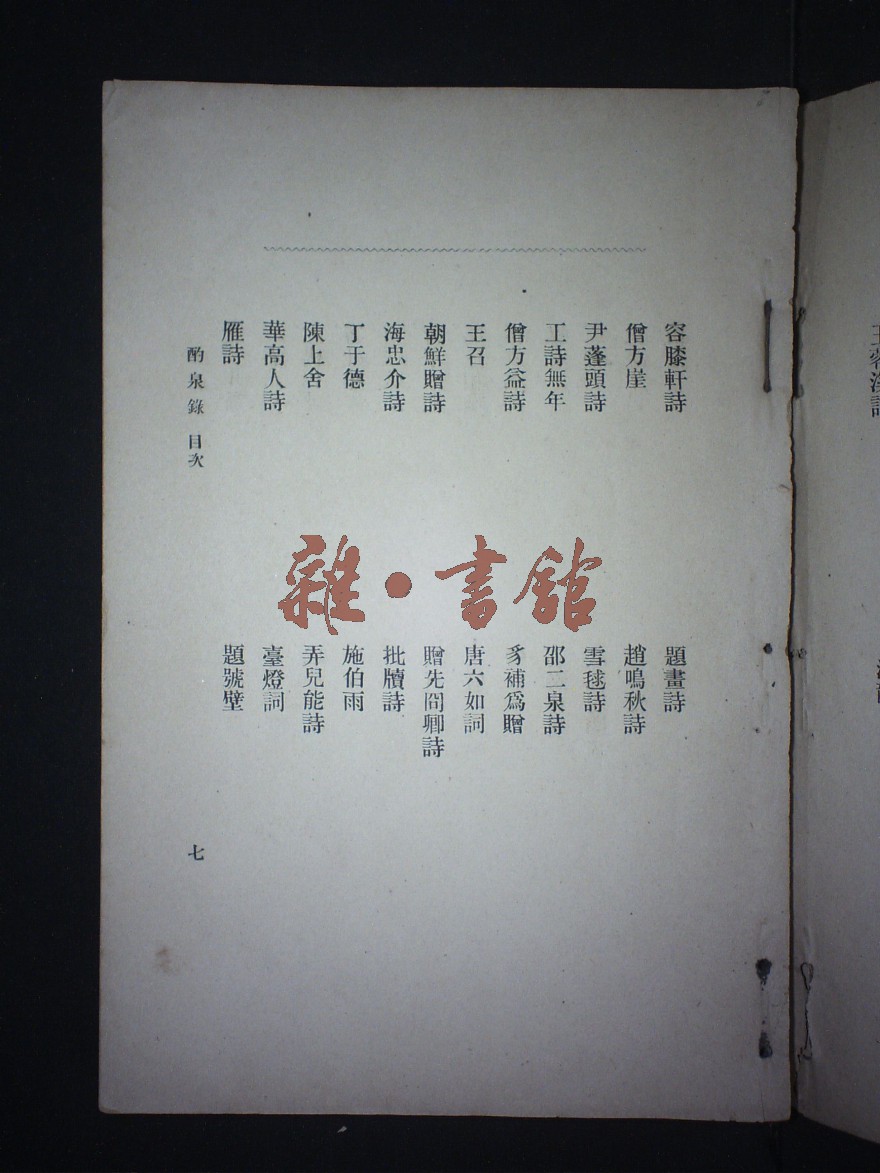 容膝軒詩
題畫詩
僧方崖
趙鳴秋詩
尹蓬頭詩
雪毬詩
工詩無年
邵二泉詩
僧方益詩
豸補爲贈
王召
唐六如詞
朝鮮贈詩
贈先冏卿詩
海忠介詩
批牘詩
丁于德
施伯雨
陳上舍
弄兒能詩
華高人詩
臺燈詞
雁詩
題號壁
酌泉錄 目次
七
雜·書館